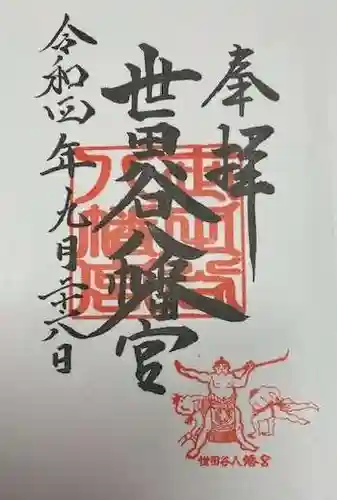 奉拝
世田谷八幡宮
令和四年九月二十八日
世田谷八幡宮